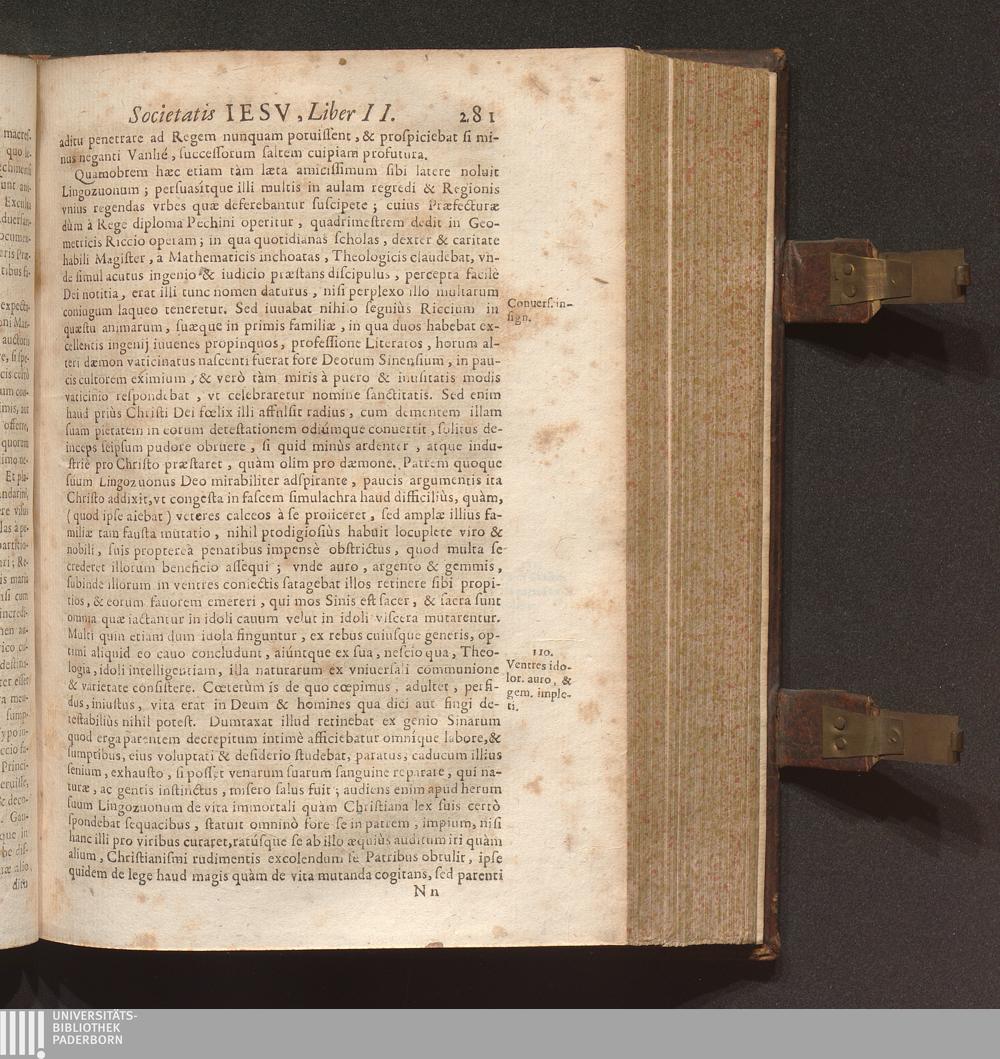 Societatis IESV, Liber II. 281
aditu penetrare ad Regem nunquam potuiſſent, & proſpiciebat ſi mi-
nus neganti Vanhé, ſucceſſorum ſaltem cuipiam profutura.
Quamobrem hæc etiam tàm læta amiciſſimum ſibi latere noluit
Lingozuonum; perſuaſitque illi multis in aulam regredi & Regionis
vnius regendas vrbes quæ deferebantur ſuſcipete; cuius Præfecturæ
dùm à Rege diploma Pechini operitur, quadrimeſtrem dedit in Geo-
metricis Riccio operam; in qua quotidianas ſcholas, dexter & caritate
habili Magiſter, à Mathematicis inchoatas, Theologicis claudebat, vn-
de ſimul acutus ingenio & iudicio præſtans diſcipulus, percepta facilè
Dei notitia, erat illi tunc nomen daturus, niſi perplexo illo multarum
coniugum laqueo teneretur. Sed iuuabat nihilo ſegniùs Riccium in
quæſtu animarum, ſuæque in primis familiæ, in qua duos habebat ex-
cellentis ingenij iuuenes propinquos, profeſſione Literatos, horum al-
teri dæmon vaticinatus naſcenti fuerat fore Deorum Sinenſium, in pau-
cis cultorem eximium, & verò tàm miris à puero & inuſitatis modis
vaticinio reſpondebat, vt celebraretur nomine ſanctitatis. Sed enim
haud priùs Chriſti Dei fœlix illi affulſit radius, cum dementem illam
ſuam pietatem in eorum deteſtationem odiúmque conuertit, ſolitus de-
inceps ſeipſum pudore obruere, ſi quid minùs ardenter, atque indu-
ſtriè pro Chriſto præſtaret, quàm olim pro dæmone. Patrem quoque
ſuum Lingozuonus Deo mirabiliter adſpirante, paucis argumentis ita
Chriſto addixit, vt congeſta in faſcem ſimulachra haud difficiliùs, quàm,
(quod ipſe aiebat) veteres calceos à ſe proiiceret, ſed amplæ illius fa-
miliæ tam fauſta mutatio, nihil prodigioſiùs habuit locuplete viro &
nobili, ſuis proptereà penatibus impensè obſtrictus, quod multa ſe
crederet illorum beneficio aſſequi; vnde auro, argento & gemmis,
ſubinde illorum in ventres coniectis ſatagebat illos retinere ſibi propi-
tios, & eorum fauorem emereri, qui mos Sinis eſt ſacer, & ſacra ſunt
omnia quæ iactantur in idoli cauum velut in idoli viſcera mutarentur.
Multi quin etiam dum idola finguntur, ex rebus cuiuſque generis, op-
timi aliquid eo cauo concludunt, aiúntque ex ſua, neſcio qua, Theo-
logia, idoli intelligentiam, illa naturarum ex vniuerſali communione
& varietate conſiſtere. Cœterùm is de quo cœpimus, adulter, perfi-
dus, iniuſtus, vita erat in Deum & homines qua dici aut fingi de-
teſtabiliùs nihil poteſt. Dumtaxat illud retinebat ex genio Sinarum
quod erga parentem decrepitum intimè afficiebatur omníque labore, &
ſumptibus, eius voluptati & deſiderio ſtudebat, paratus, caducum illius
ſenium, exhauſto, ſi poſſet venarum ſuarum ſanguine reparare, qui na-
turæ, ac gentis inſtinctus, miſero ſalus fuit; audiens enim apud herum
ſuum Lingozuonum de vita immortali quàm Chriſtiana lex ſuis certò
ſpondebat ſequacibus, ſtatuit omninò fore ſe in patrem, impium, niſi
hanc illi pro viribus curaret, ratúſque ſe ab illo æquiùs auditum iri quàm
alium, Chriſtianiſmi rudimentis excolendum ſe Patribus obtulit, ipſe
quidem de lege haud magis quàm de vita mutanda cogitans, ſed parenti
N n
Conuerſ. in-
ſign.
110.
Ventres ido-
lor. auro, &
gem. imple-
ti.
UNIVERSITÄTS-
BIBLIOTHEK
PADERBORN